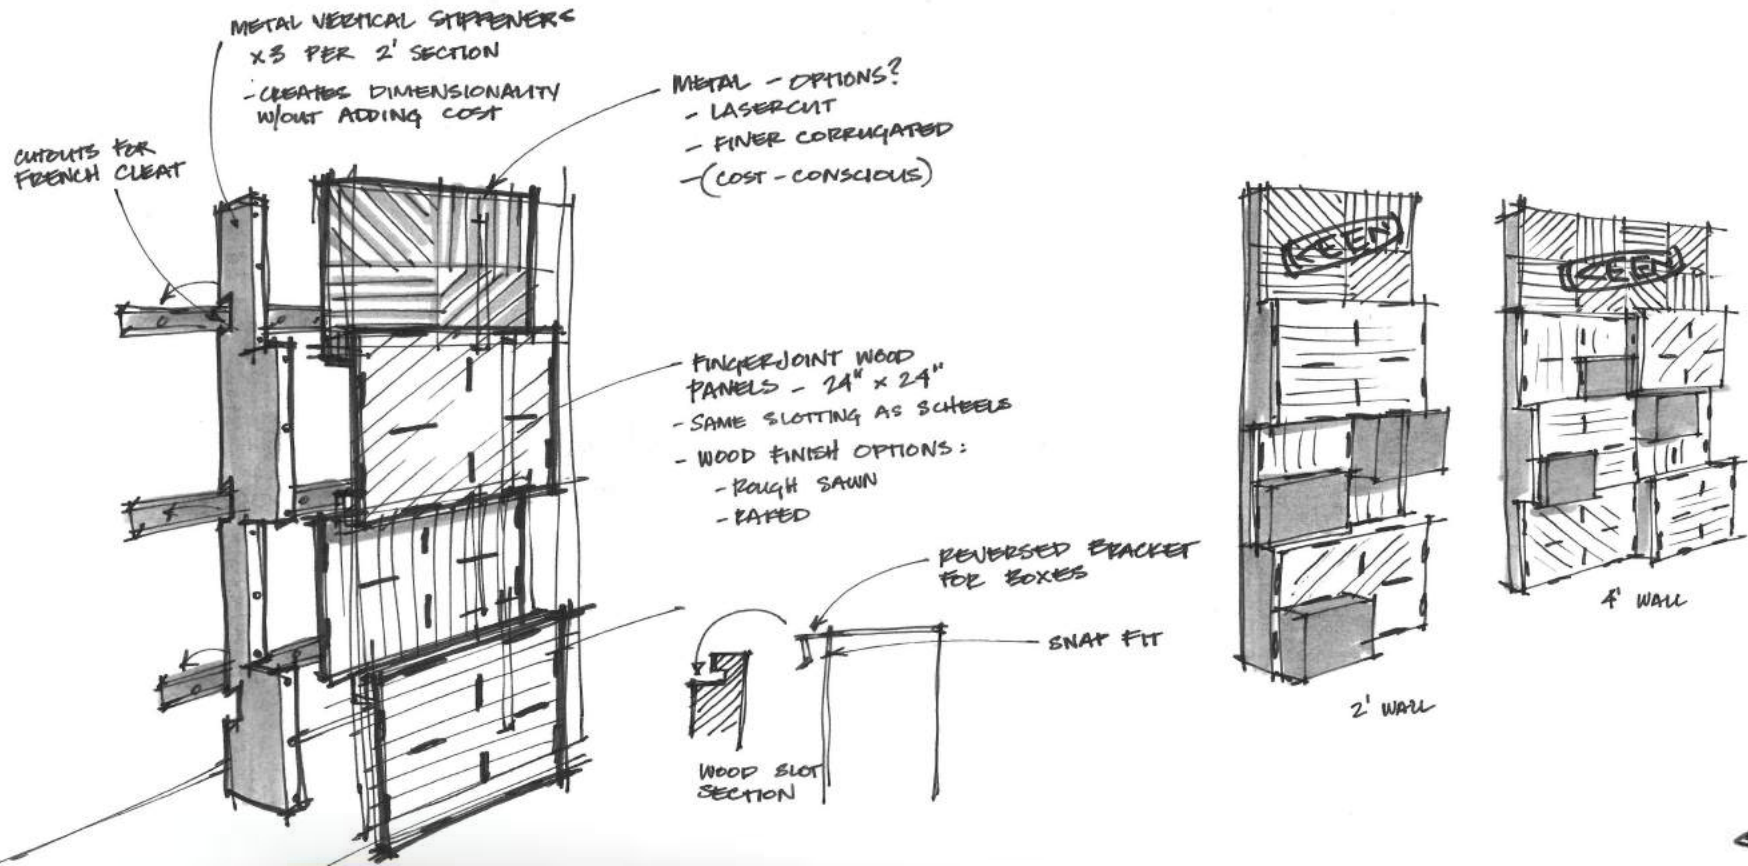 METAL VERTICAL STIFFENERS
x3 PER 2' SECTION
- CREATES DIMENSIONALITY
W/OUT ADDING COST
CUTOUTS FOR
FRENCH CLEAT
METAL - OPTIONS?
- LASERCUT
- FINER CORRUGATED
- (COST-CONSCIOUS)
FINGERJOINT WOOD
PANELS - 24" x 24"
- SAME SLOTTING AS SCHEELS
- WOOD FINISH OPTIONS:
- ROUGH SAWN
- RAKED
REVERSED BRACKET
FOR BOXES
SNAP FIT
WOOD SLOT
SECTION
KEEN
2' WALL
KEEN
4' WALL